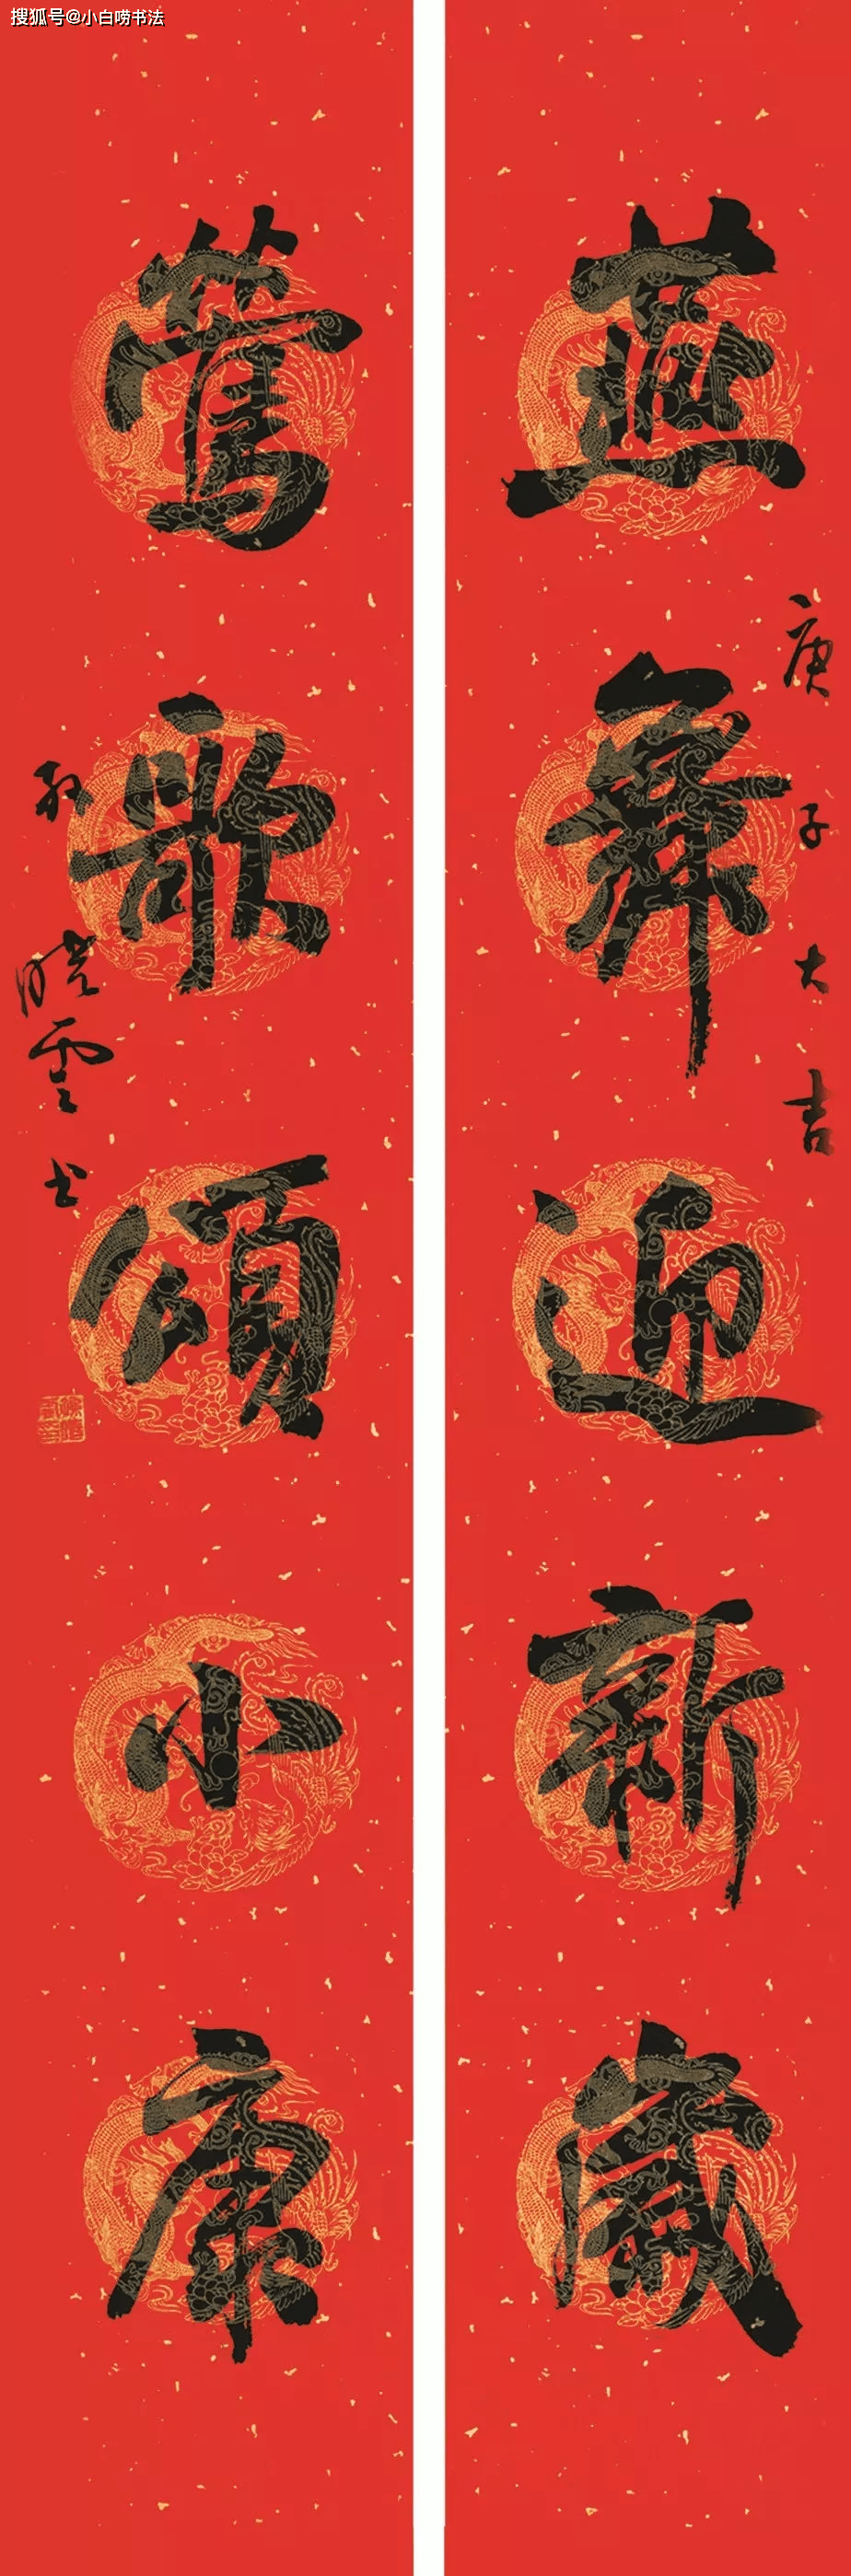 搜狐号@小白唠书法
燕舞迎新歲
庚子大吉
鶯歌頌小康
孫曉雲书